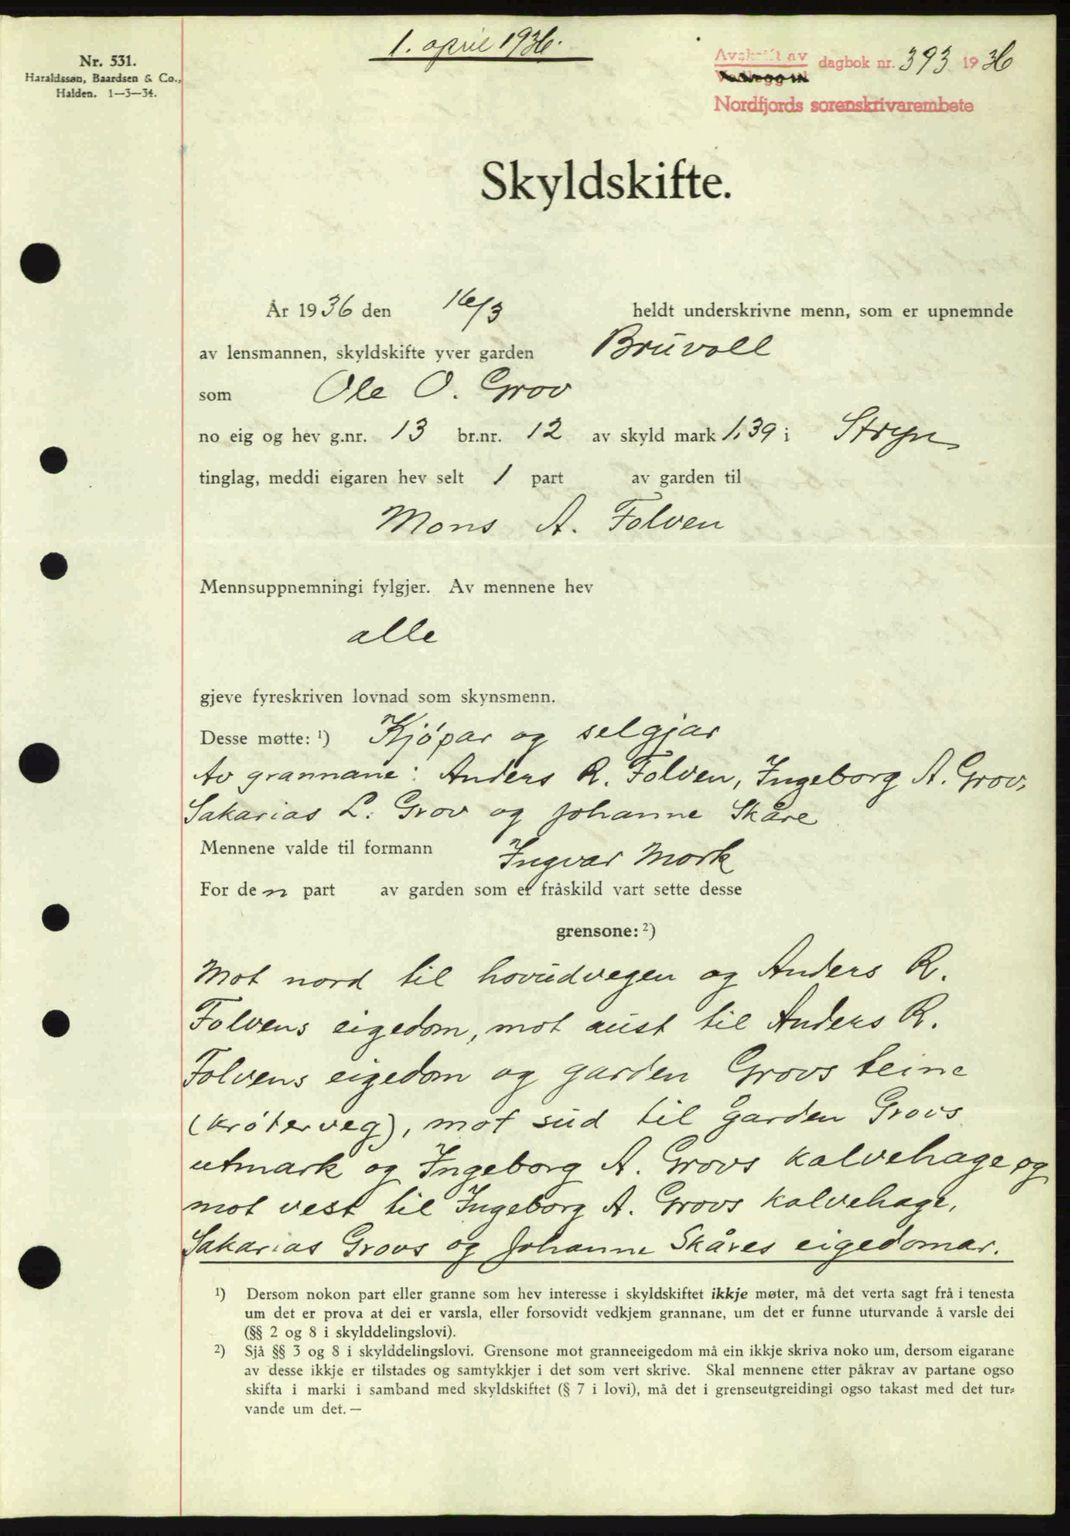 Nr. 531.
Haraldssøn, Baardsen & Co.,
Halden. 1—3—34.
1. april 1936.
Avskrift av
Vedlegg til
dagbok nr. 393 1936
Nordfjords sorenskrivarembete
Skyldskifte.
År 1936 den 16/3 heldt underskrivne menn, som er upnemnde
av lensmannen, skyldskifte yver garden Bruvoll
som Ole O. Grov
no eig og hev g.nr. 13 br.nr. 12 av skyld mark 1,39 i Stryn
tinglag, meddi eigaren hev selt 1 part av garden til
Mons A. Folven
Mennsuppnemningi fylgjer. Av mennene hev
alle
gjeve fyreskriven lovnad som skynsmenn.
Desse møtte: ¹) Kjøpar og selgjar
Av grannane: Anders R. Folven, Ingeborg A. Grov,
Sakarias L. Grov og Johanne Skåre
Mennene valde til formann Ingvar Mork
For den part av garden som er fråskild vart sette desse
grensone: ²)
Mot nord til hovudvegen og Anders R.
Folvens eigedom, mot aust til Anders R.
Folvens eigedom og garden Grovs teine
(krøterveg), mot sud til garden Grovs
utmark og Ingeborg A. Grovs kalvehage og
mot vest til Ingeborg A. Grovs kalvehage,
Sakarias Grovs og Johanne Skåres eigedomar.
¹) Dersom nokon part eller granne som hev interesse i skyldskiftet ikkje møter, må det verta sagt frå i tenesta
um det er prova at dei er varsla, eller forsovidt vedkjem grannane, um det er funne uturvande å varsle dei
(§§ 2 og 8 i skylddelingslovi).
²) Sjå §§ 3 og 8 i skylddelingslovi. Grensone mot granneeigedom må ein ikkje skriva noko um, dersom eigarane
av desse ikkje er tilstades og samtykkjer i det som vert skrive. Skal mennene etter påkrav av partane ogso
skifta i marki i samband med skyldskiftet (§ 7 i lovi), må det i grenseutgreidingi ogso takast med det tur-
vande um det. —